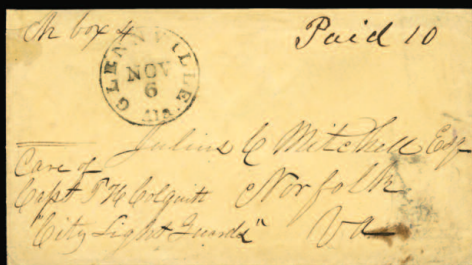 Ch box 4
Paid 10
GLENNVILLE
NOV
6
Julius C Mitchell Esq
Care of
Capt P H Colquitt
Norfolk
"City Light Guards"
Va